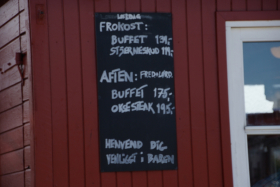 FROKOST:
BUFFET 139,-
STJERNESKUD 119,-
AFTEN: FRED+LØRD
BUFFET 175,-
OKSESTEAK 195,-
HENVEND DIG
VENLIGST i BAREN